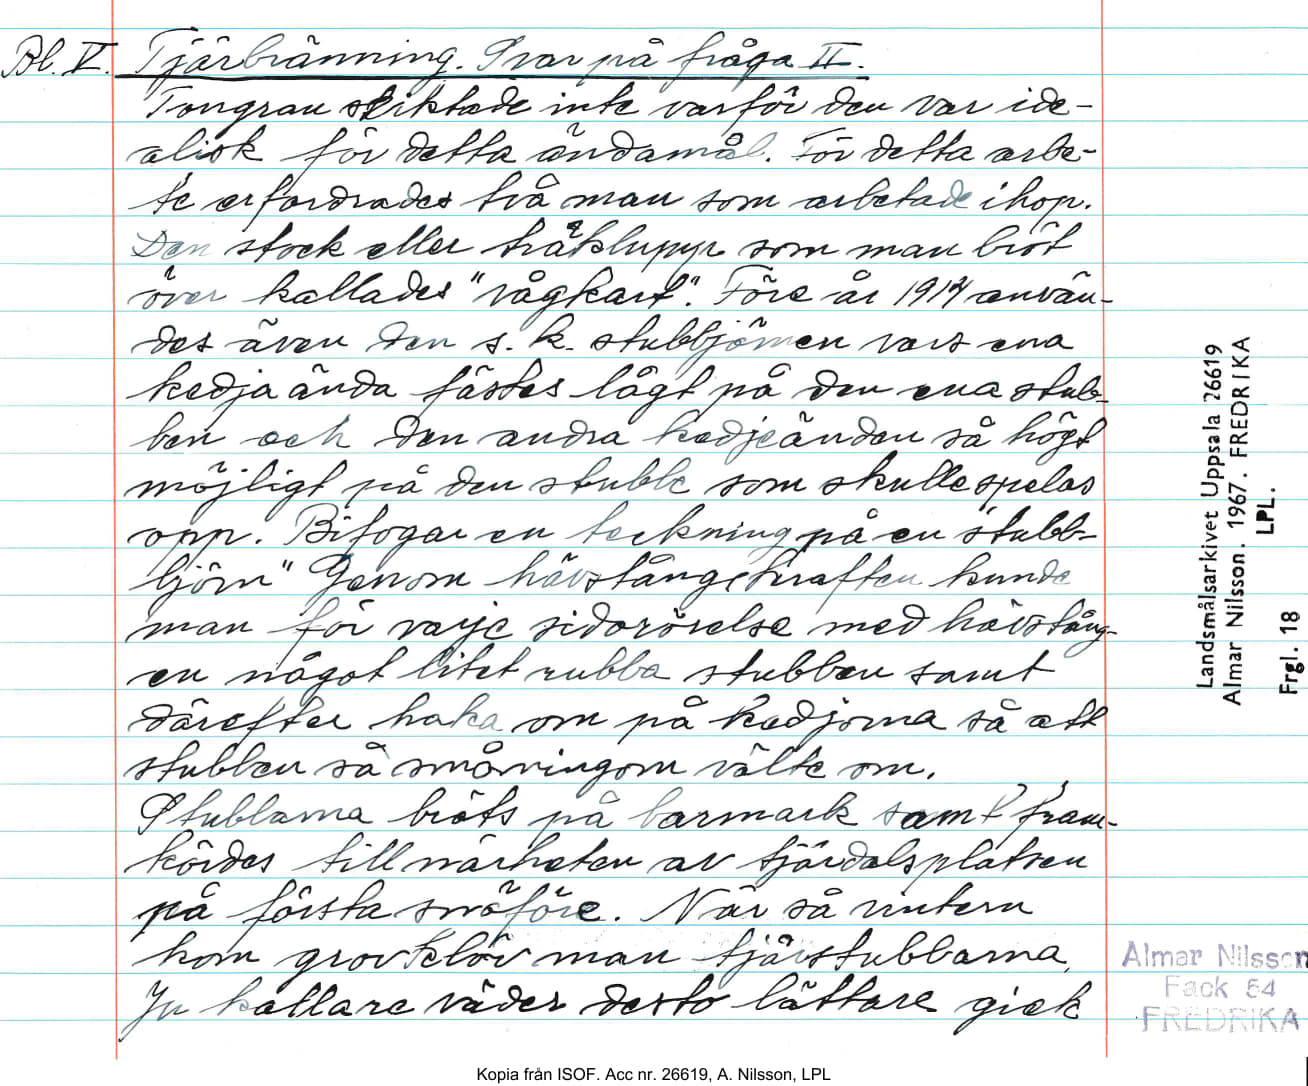 Bl. V. Tjärbränning. Svar på fråga II.
Tongran sliktade inte varför den var ide-
alisk för detta ändamål. För detta arbe-
te erfordrades två man som arbetade ihop.
Den stock eller träklupp som man bröt
över kallades "vågkart". Före år 1914 använ-
des även den s. k. stubbjörnen vars ena
kedja ända fästes lågt på den ena stub-
ben och den andra kedjeänden så högt
möjligt på den stubbe som skulle spelas
opp. Bifogar en teckning på en "stubb-
björn" Genom hävstångskraften kunde
man för varje sidorörelse med hävstång-
en något litet rubba stubben samt
därefter haka om på kedjorna så att
stubben så småningom välte om.
Stubbarna bröts på barmark samt fram-
kördes till närheten av tjärdalsplatsen
på första snöföre. När så vintern
kom grovklöv man tjärstubbarna,
Ju kallare väder desto lättare gick
Landsmålsarkivet Uppsala 26619
Almar Nilsson. 1967. FREDRIKA
LPL.
Frgl. 18
Almar Nilsson
Fack 54
FREDRIKA
Kopia från ISOF. Acc nr. 26619, A. Nilsson, LPL